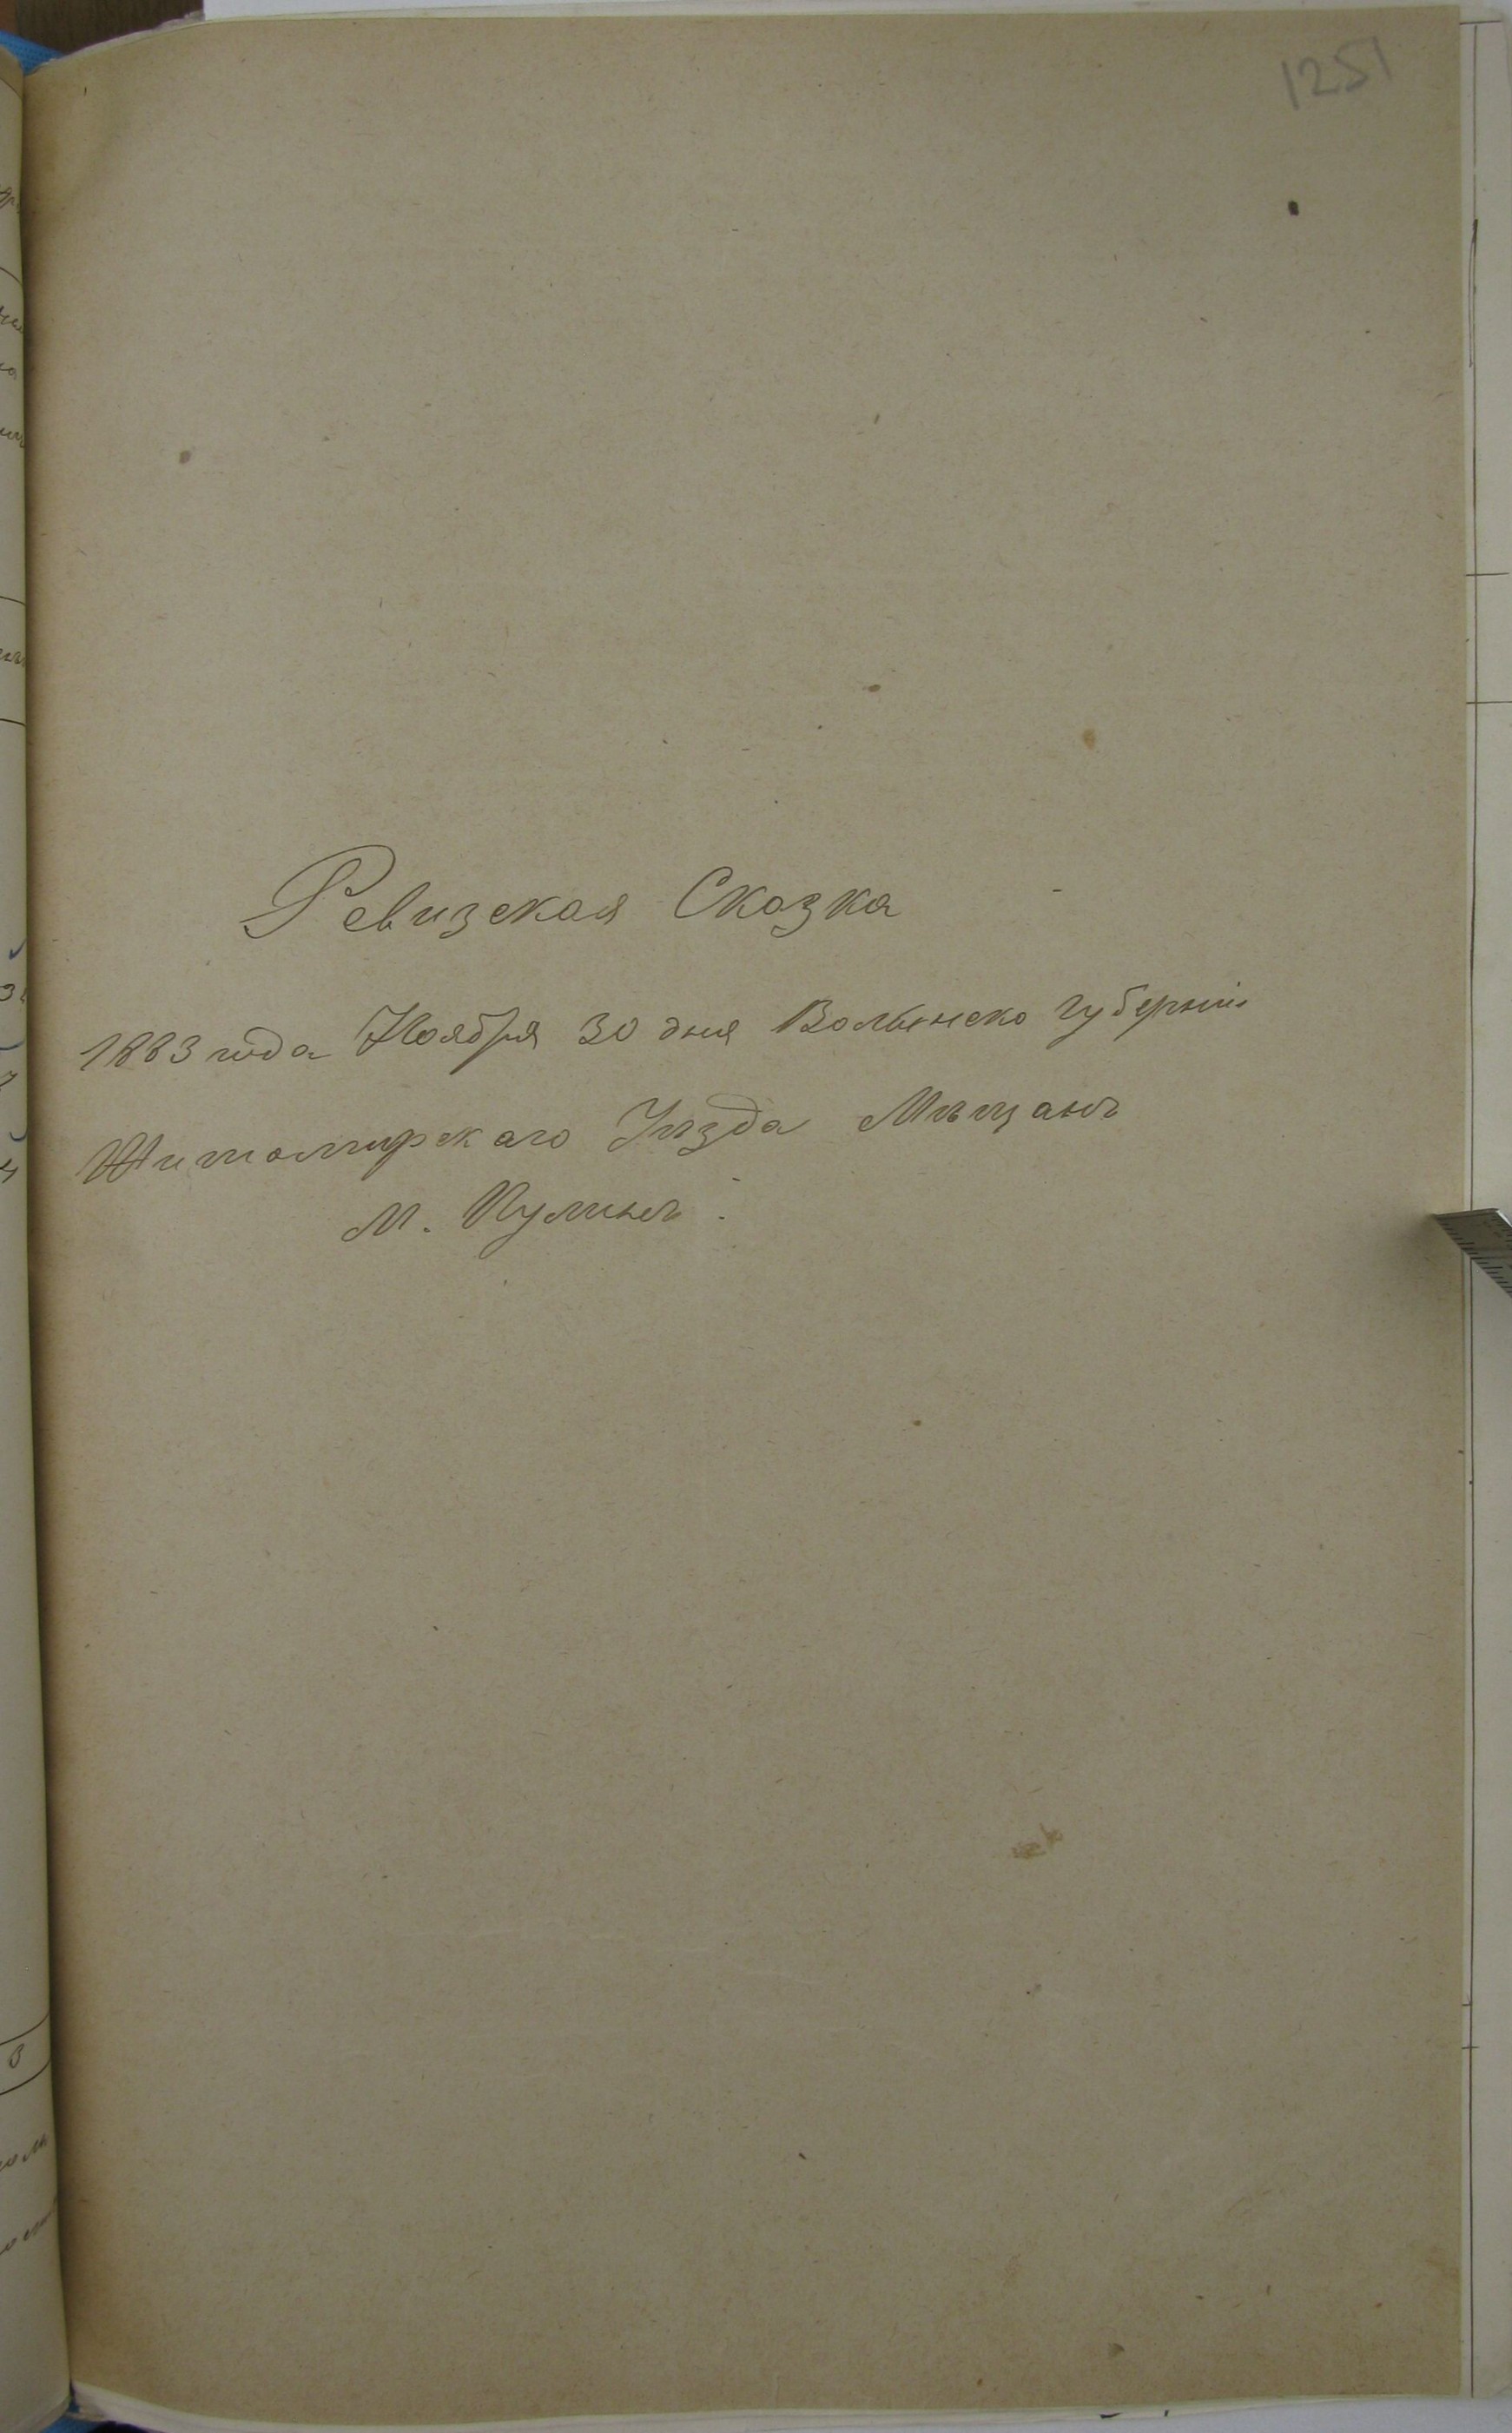 1251
Ревизская Сказка
1883 года Ноября 30 дня Волынско губерніи
Житомирскаго Уѣзда Мѣщанъ
м. Пулинъ